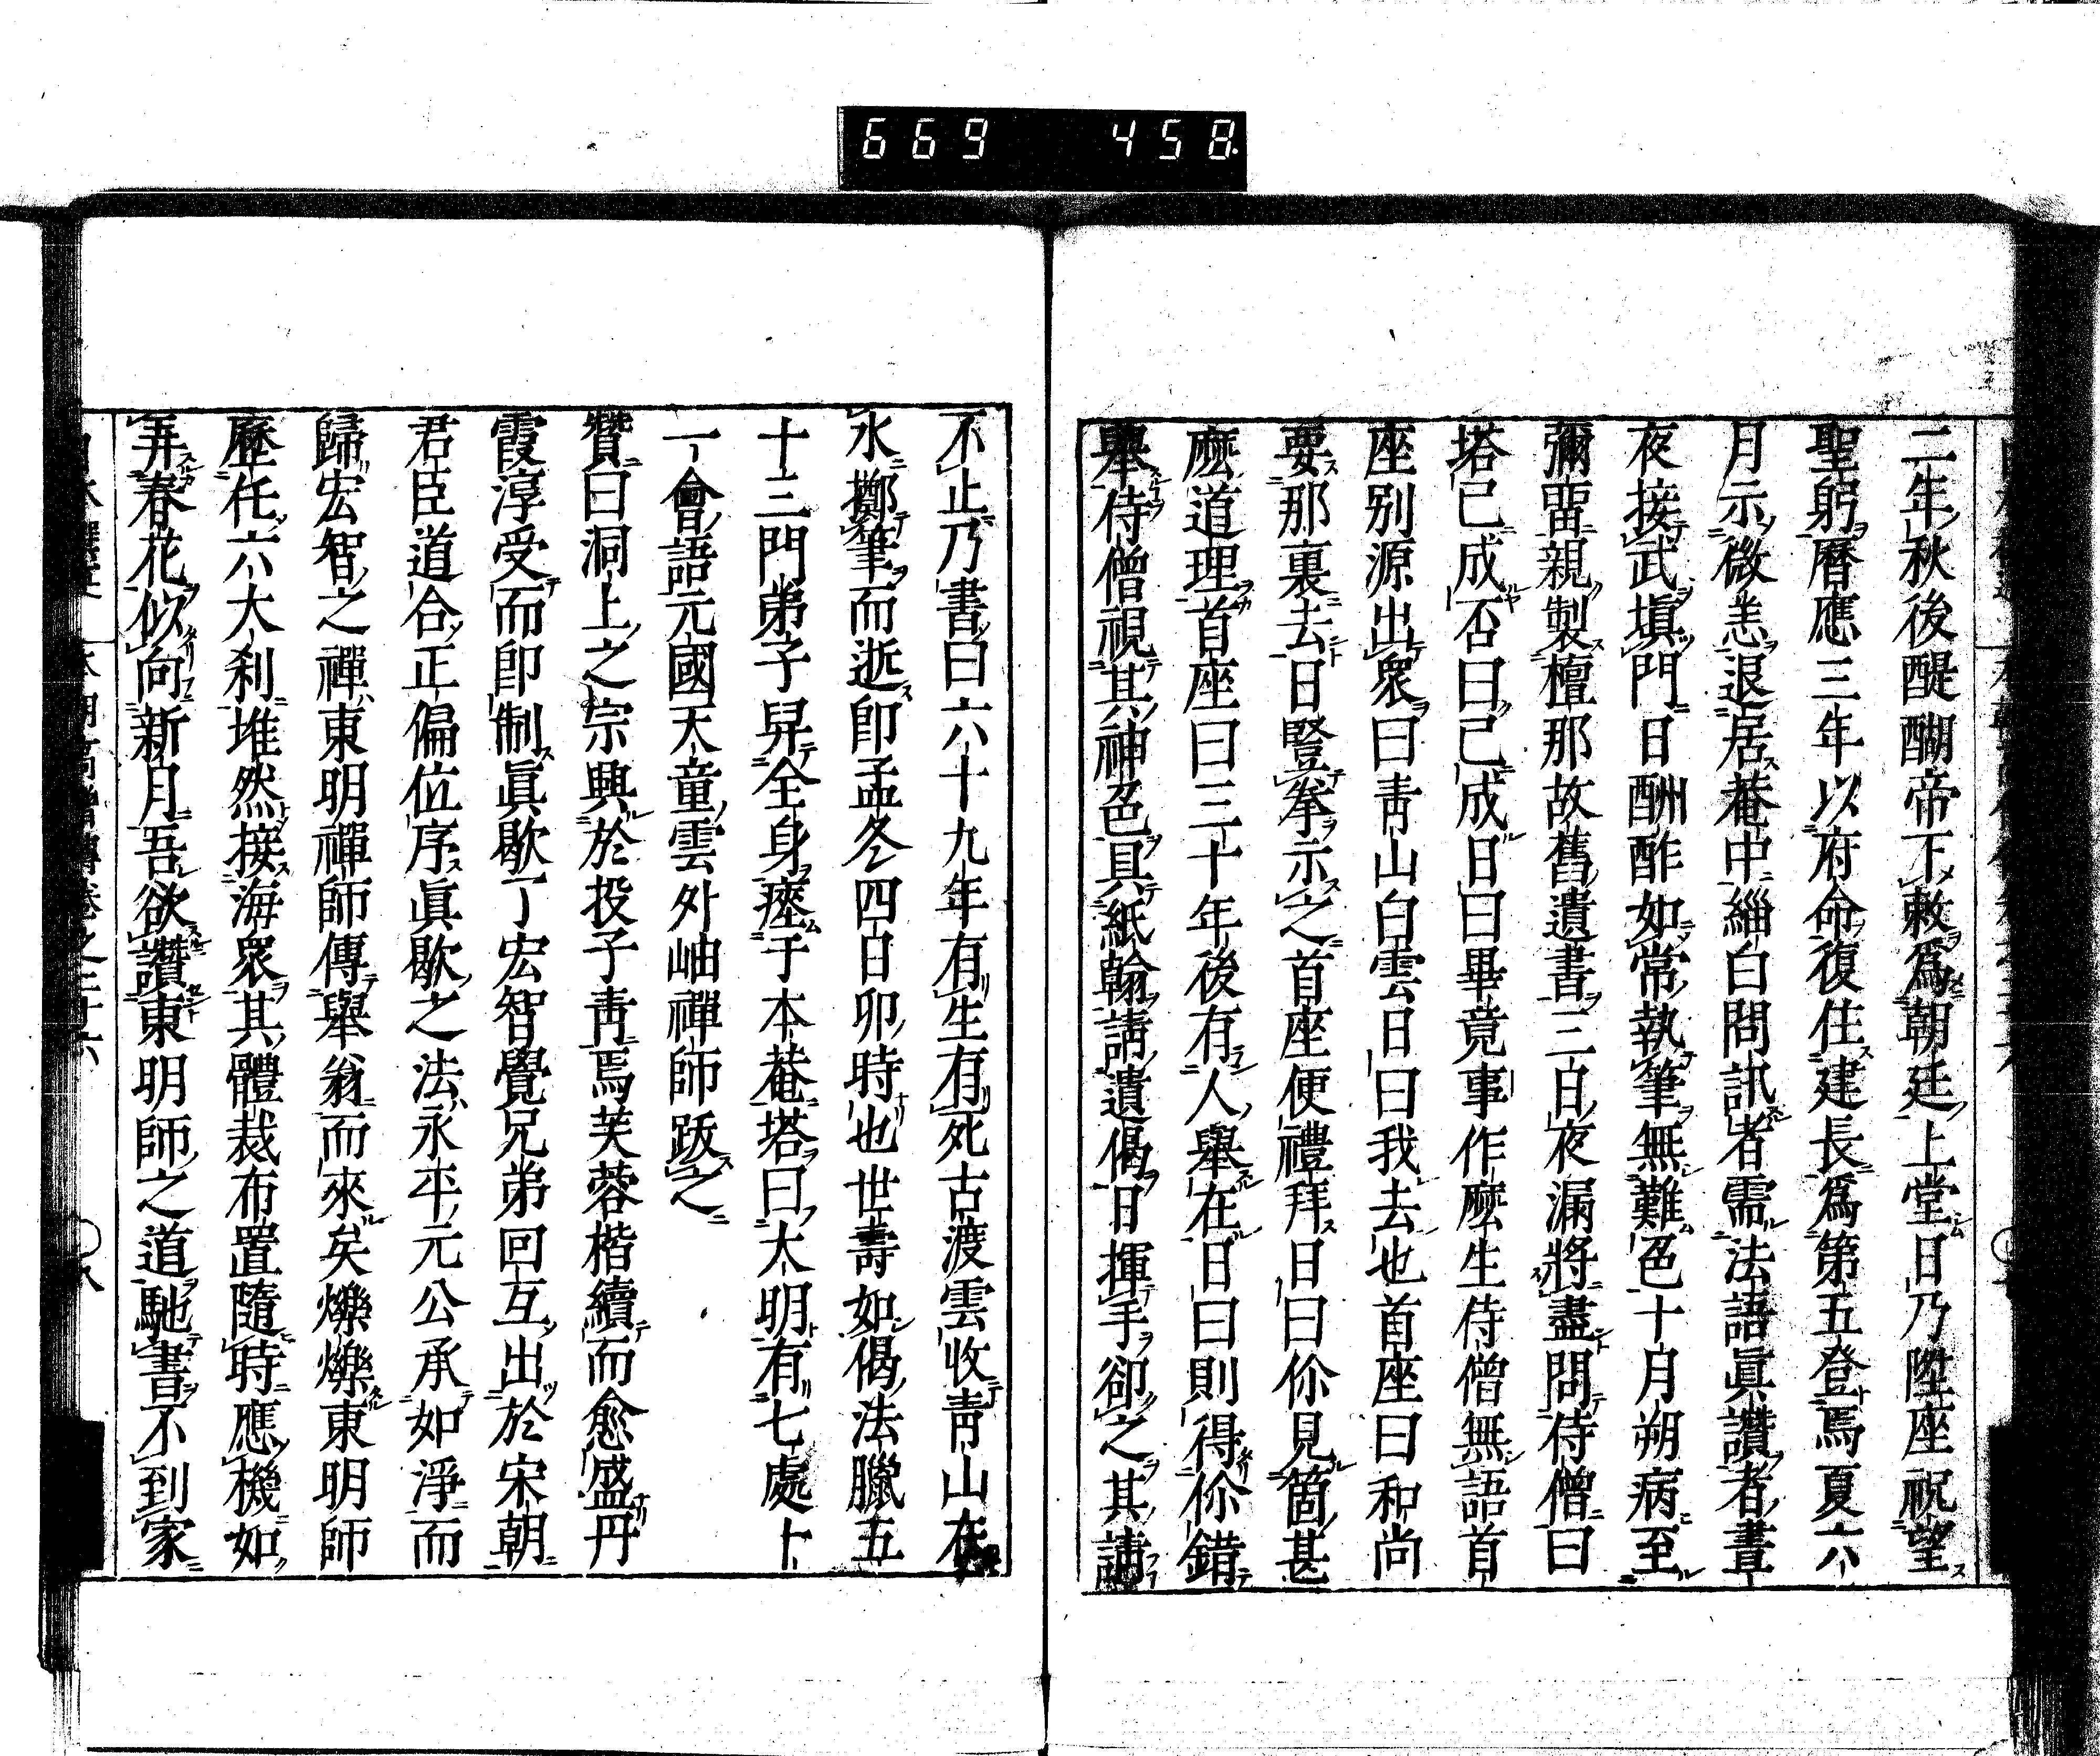 669 458
二年秋後醍醐帝下敕爲朝廷上堂日乃陞座祝望
聖躬曆應三年以府命復住建長爲第五登焉夏六
月示微恙退居菴中緇白問訊者需法語眞讚者晝
夜接武塡門日酬酢如常執筆無難色十月朔病至
彌畱親製檀那故舊遺書三日夜漏將盡問侍僧曰
塔已成否曰已成日曰畢竟事作麽生侍僧無語首
座別源出衆曰靑山白雲日曰我去也首座曰和尚
要那裏去日豎拳示之首座便禮拜日曰伱見箇甚
麽道理首座曰三十年後有人舉在日曰則得伱錯
舉侍僧視其神色具紙翰請遺偈日揮手卻之其請
不止乃書曰六十九年有生有死古渡雲收靑山在
水擲筆而逝卽孟冬四日卯時也世壽如偈法臘五
十三門弟子舁全身瘞于本菴塔曰大明有七處十
一會語元國天童雲外岫禪師跋之
贊曰洞上之宗興於投子靑焉芙蓉楷續而愈盛丹
霞淳受而卽制眞歇了宏智覺兄弟回互出於宋朝
君臣道合正偏位序眞歇之法永平元公承如淨而
歸宏智之禪東明禪師傳舉翁而來矣爍爍東明師
歷任六大刹堆然接海衆其體裁布置隨時應機如
弄春花似向新月吾欲讚東明師之道馳書不到家